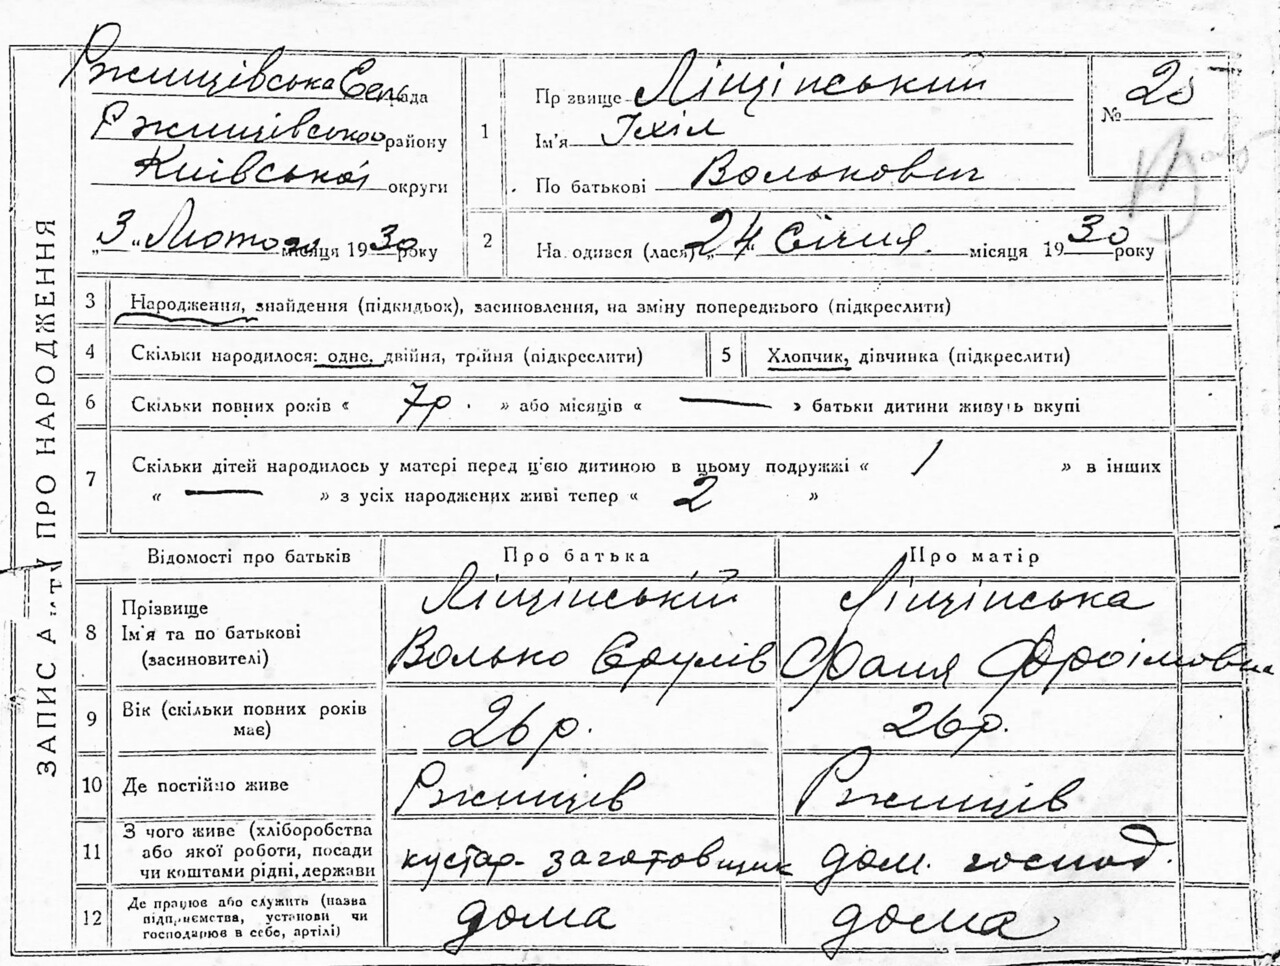 ЗАПИС АКТУ ПРО НАРОДЖЕННЯ
Ржищівська Сельрада
Ржищівського району
Київської округи
„3„ Лютого місяця 1930 року
1
Прізвище Ліщінський
Ім'я Іхіл
По батькові Волькович
№ 25
2
На одився (лася) „24" Січня місяця 1930 року
3 Народження, знайдення (підкидьок), засиновлення, на зміну попереднього (підкреслити)
4 Скільки народилося: одне, двійня, трійня (підкреслити)
5 Хлопчик, дівчинка (підкреслити)
6 Скільки повних років « 7р. » або місяців « — » батьки дитини живуть вкупі
7 Скільки дітей народилось у матері перед ц'єю дитиною в цьому подружжі « 1 » в інших
« — » з усіх народжених живі тепер « 2 »
Відомості про батьків Про батька Про матір
8 Прізвище
Ім'я та по батькові
(засиновителі)
Ліщінській
Волько Єрулів
Ліщінська
Фаня Фроімовна
9 Вік (скільки повних років
має)
26 р.
26р.
10 Де постійно живе Ржищів Ржищів
11 З чого живе (хліборобства
або якої роботи, посади
чи коштами рідні, держави
кустар-заготовщик
дом. господ.
12 Де працює або служить (назва
підприємства, установи чи
господарює в себе, артілі)
дома
дома